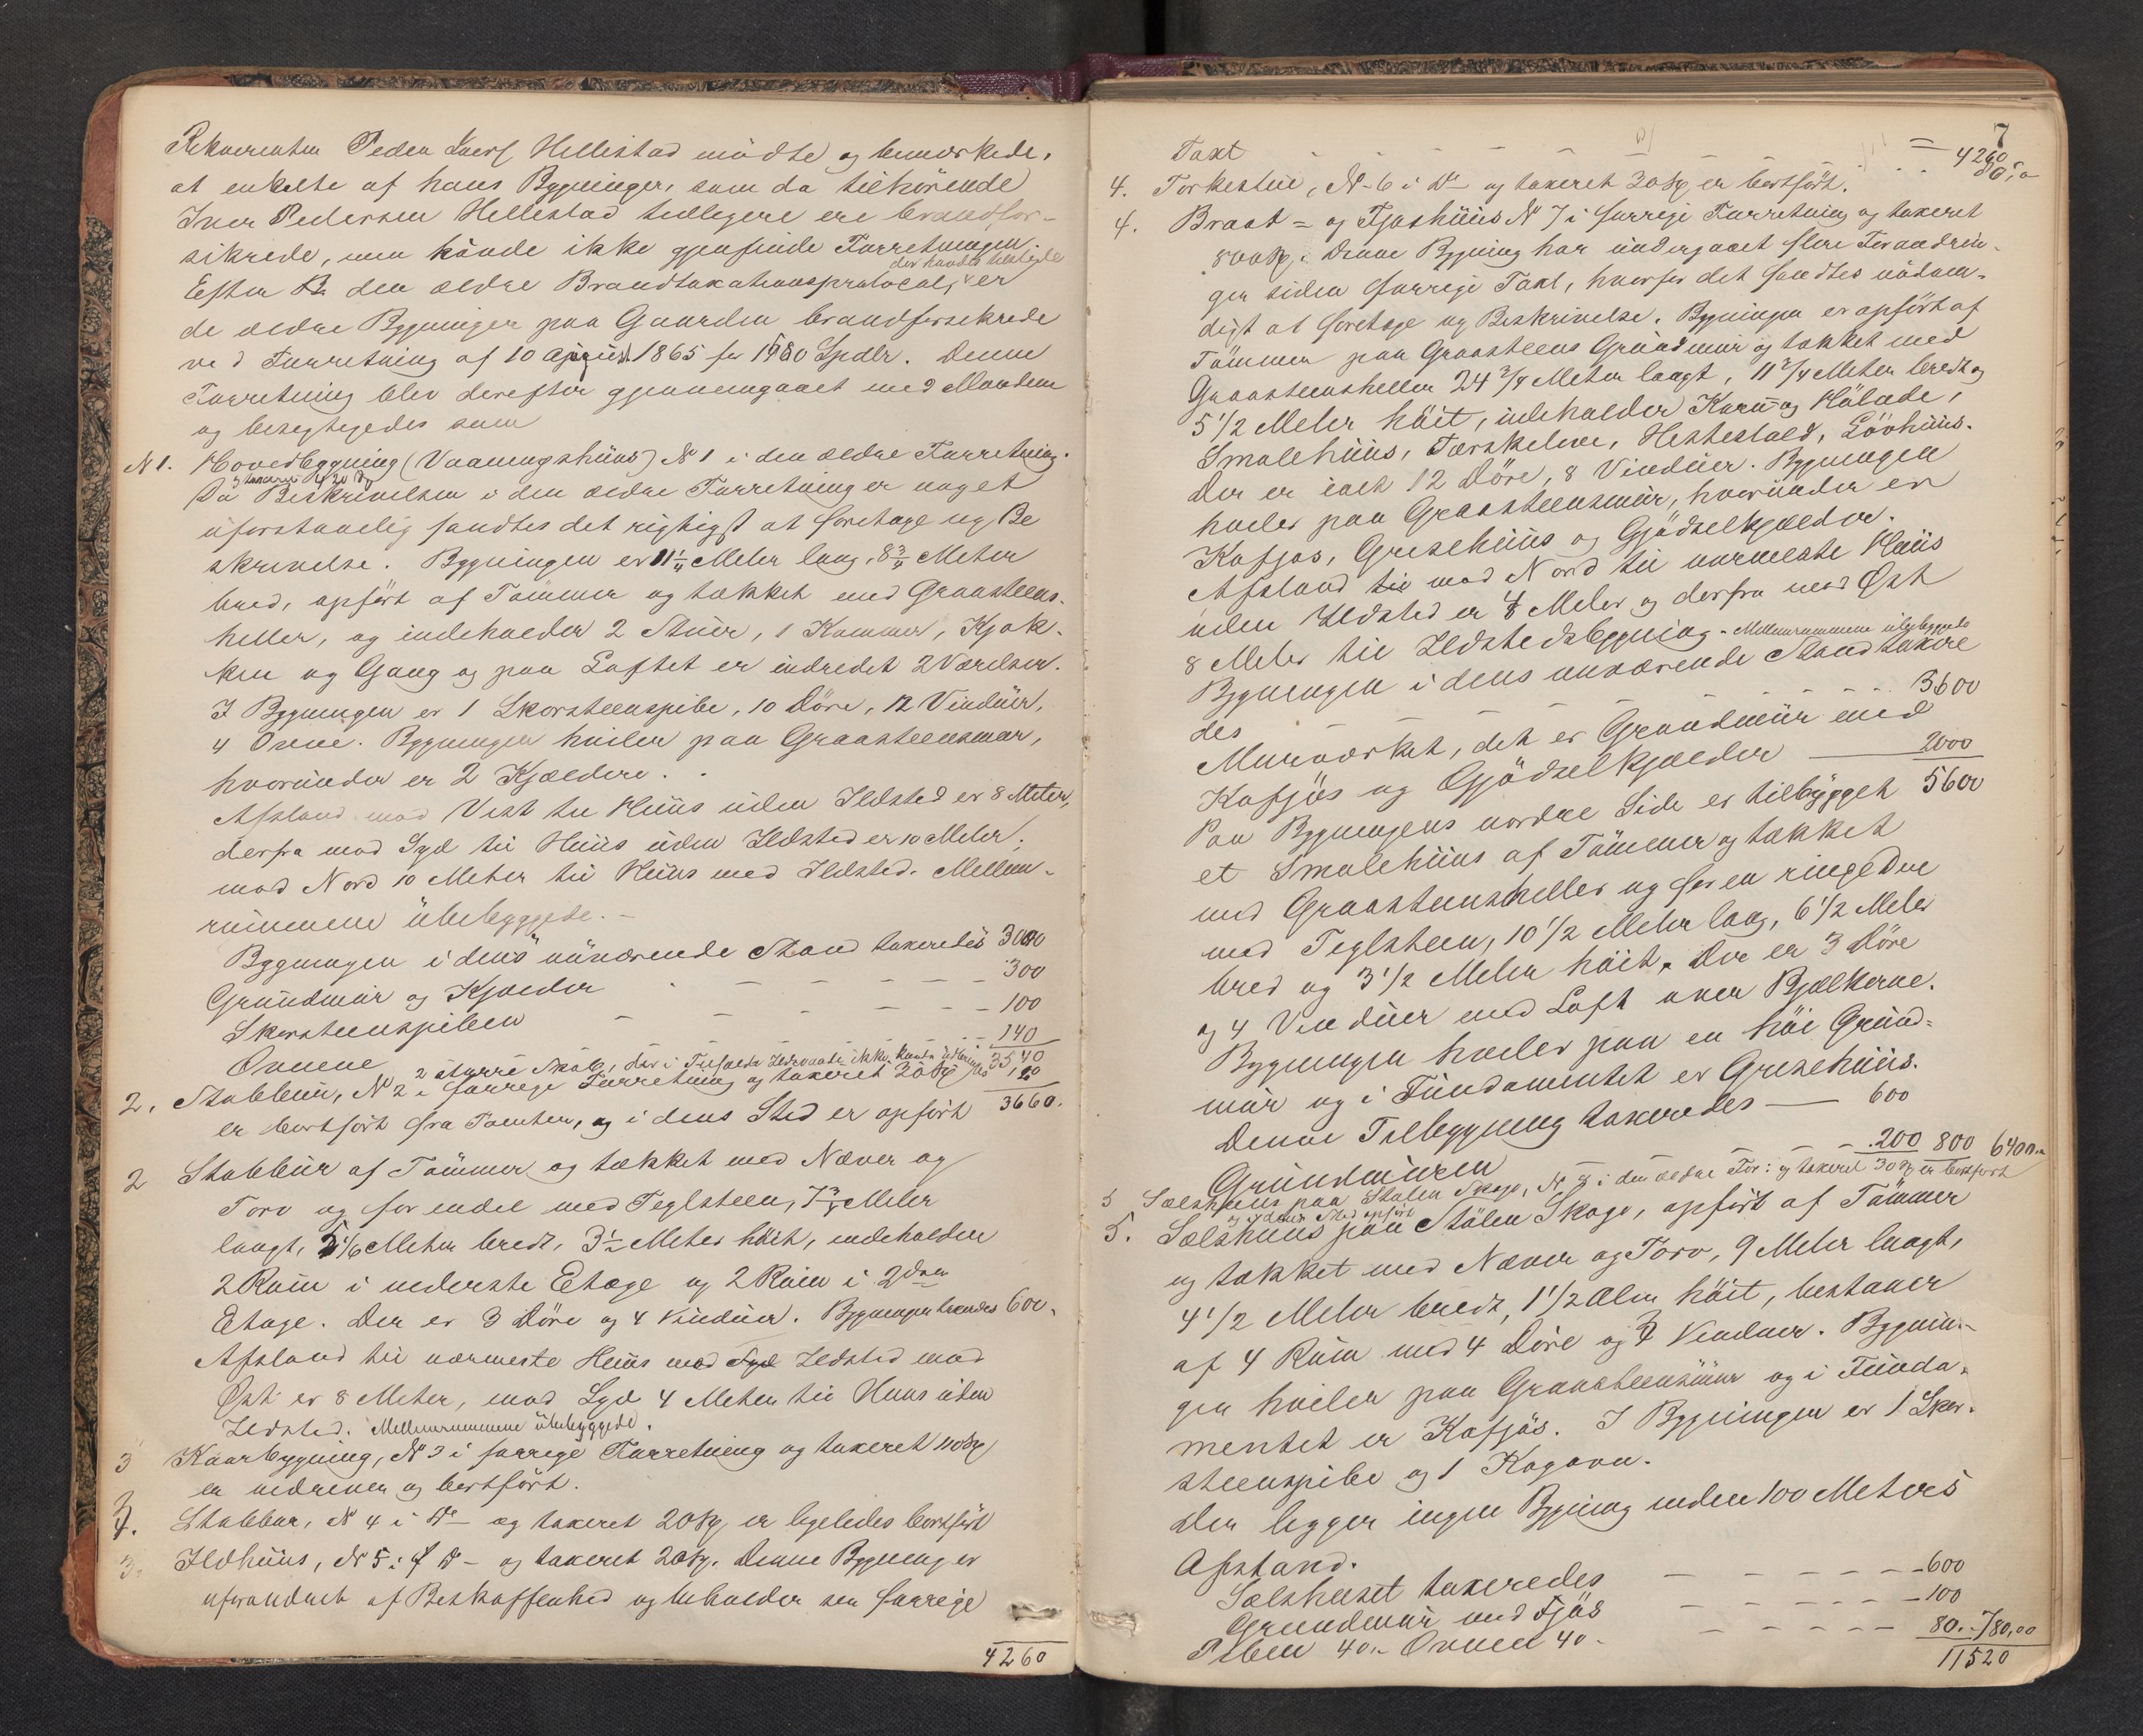 Rekvirenten Peder Iversen Hellistad mødte og bemærkede,
at enkelte af hans Bygninger, som da tilhörende
Iver Pedersen Hellestad tidligere ere brandfor-
sikrede, men kunde ikke gjenfinde Forretningen.
Efter den ældre Brandtaxationsprotocol, der havdes tilstede er
de ældre Bygninger paa Gaarden brandforsikrede
ved Forretning af 10 August 1865 for 1180 Spdlr. Denne
Forretning blev derefter gjennemgaaet med Manden
og besigtigedes som
N 1. Hovedbygning (Vaaningshüüs) N 1 i den ældre Forretning.
og taxeret 420 Sp
Da Beskrivelsen i den ældre Forretning er noget
uforstaaelig fandtes det rigtigst at foretage ny Be
skrivelse. Bygningen er 11 1/4 Meter lang, 8 3/4 Meter
bred, opført af Tömmer og tækket med Graasteens-
heller, og indeholder 2 Stuer, 1 Kammer, Kjøk-
ken og Gang og paa Loftet er indredet 2 Værelser.
I Bygningen er 1 Skorsteenspibe, 10 Döre, 12 Vinduer,
4 Ovne. Bygningen hviler paa Graasteensmur,
hvorunder er 2 Kjældere.
Afstand mod Vest til Hüüs uden Ildsted er 8 Meter,
derfra mod Syd til Hüüs uden Ildsted er 10 Meter;
mod Nord 10 Meter til Hüüs med Ildsted. Mellem-
rummene übebyggede. -
Bygningen i dens nüværende Stand taxeredes 3000
Grundmur og Kjælder - - - - 300
Skorsteenspiben - - - - - 100
Ovnene - - - - - 140
2 større Skabe, der i Tilfælde Ildsvaade ikke kunde 3540
120
2. Stabbur, N 2 i forrige Forretning og taxeret 30 Sp
er bortført fra Tomten, og i dens Sted er opført 3660.
2 Stabbür af Tömmer og tækket med Næver og
Torv og for endel med Teglsteen, 7 3/4 Meter
langt, 5 1/6 Meter bredt, 3 1/2 Meter höit, indeholder
2 Rum i nederste Etage og 2 Rum i 2den
Etage. Der er 3 Döre og 4 Vinduer. Bygningen taxeredes 600.
Afstand til nærmeste Hüüs med Ildsted mod
Öst er 8 Meter, mod Syd 4 Meter til Huus uden
Ildsted. Mellemrummene übebyggede.
3 Kaarbygning, N 3 i forrige Forretning og taxeret 110 Sp
er nedreven og bortført.
4. Stabbur, N 4 i Do - og taxeret 20 Sp, er ligeledes bortført
3. Ildhüüs, N 5 i Do - og taxeret 20 Sp. Denne Bygning er
uforandret af Beskaffenhed og beholder sin forrige
4260
7
Taxt - - - - - = 4260
80,0
4. Torkestue, N 6 i Do - og taxeret 30 Sp, er bortført.
4. Braat = og Fjøshüüs N 7 i forrige Forretning og taxeret
500 Sp. Denne Bygning har undergaaet flere Forandrin-
ger siden forrige Taxt, hvorfor det fandtes nödven-
digt at foretage ny Beskrivelse. Bygningen er opført af
Tömmer paa Graasteens Grundmur og tækket med
Graasteensheller 24 3/4 Meter langt, 11 3/4 Meter bredt og
5 1/2 Meter höit, indeholder Korn- og Hölade,
Smalehüüs, Tærskelove, Hestestald, Lövhüüs.
Der er ialt 12 Döre, 8 Vinduer. Bygningen
hviler paa Graasteensmur, hvorunder er
Kofjøs, Grisehüüs og Gjödselkjælder.
Afstand mod Nord til nærmeste Hüüs
uden Ildsted er 4 Meter og derfra mod Øst
8 Meter til Ildstedsbygning. Mellemrummene übebyggede
Bygningen i dens nuværende Stand taxere
des - - - - - - 3600
Murværket, det er Grundmur med
Kofjös og Gjödselkjælder — 2000
Paa Bygningens nordre Side er tilbygget 5600
et Smalehüüs af Tömmer og tækket
med Graasteensheller og for en ringe Deel
med Teglsteen, 10 1/2 Meter lang, 6 1/2 Meter
bred og 3 1/2 Meter höit. Der er 3 Döre
og 4 Vinduer med Loft over Bjælkerne.
Bygningen hviler paa en höi Grund-
mür og i Fundamentet er Grisehüüs.
Denne Tilbygning taxeredes — 600
Grundmuren - - - 200 800 6400.
5 Sælshuus paa Stölen Skage, N 8 i den ældre For: og taxeret 30 Sp er bortført
og i dens Sted opført
5. Sælshuus paa Stölen Skage, opført af Tömmer
og tækket med Næver og Torv, 9 Meter langt,
4 1/2 Meter bredt, 1 1/2 Alen höit, bestaaer
af 4 Rum med 4 Döre og 4 Vinduer. Bygnin-
gen hviler paa Graasteensmuur og i Funda-
mentet er Kofjös. I Bygningen er 1 Skor-
steenspibe og 1 Kogovn.
Der ligger ingen Bygning inden 100 Meters
Afstand.
Sælshuset taxeredes - - - - 600
Grundmur med Fjös - - - - 100
Piben 40.- Ovnen 40.- - - - 80.- 780,00
11520